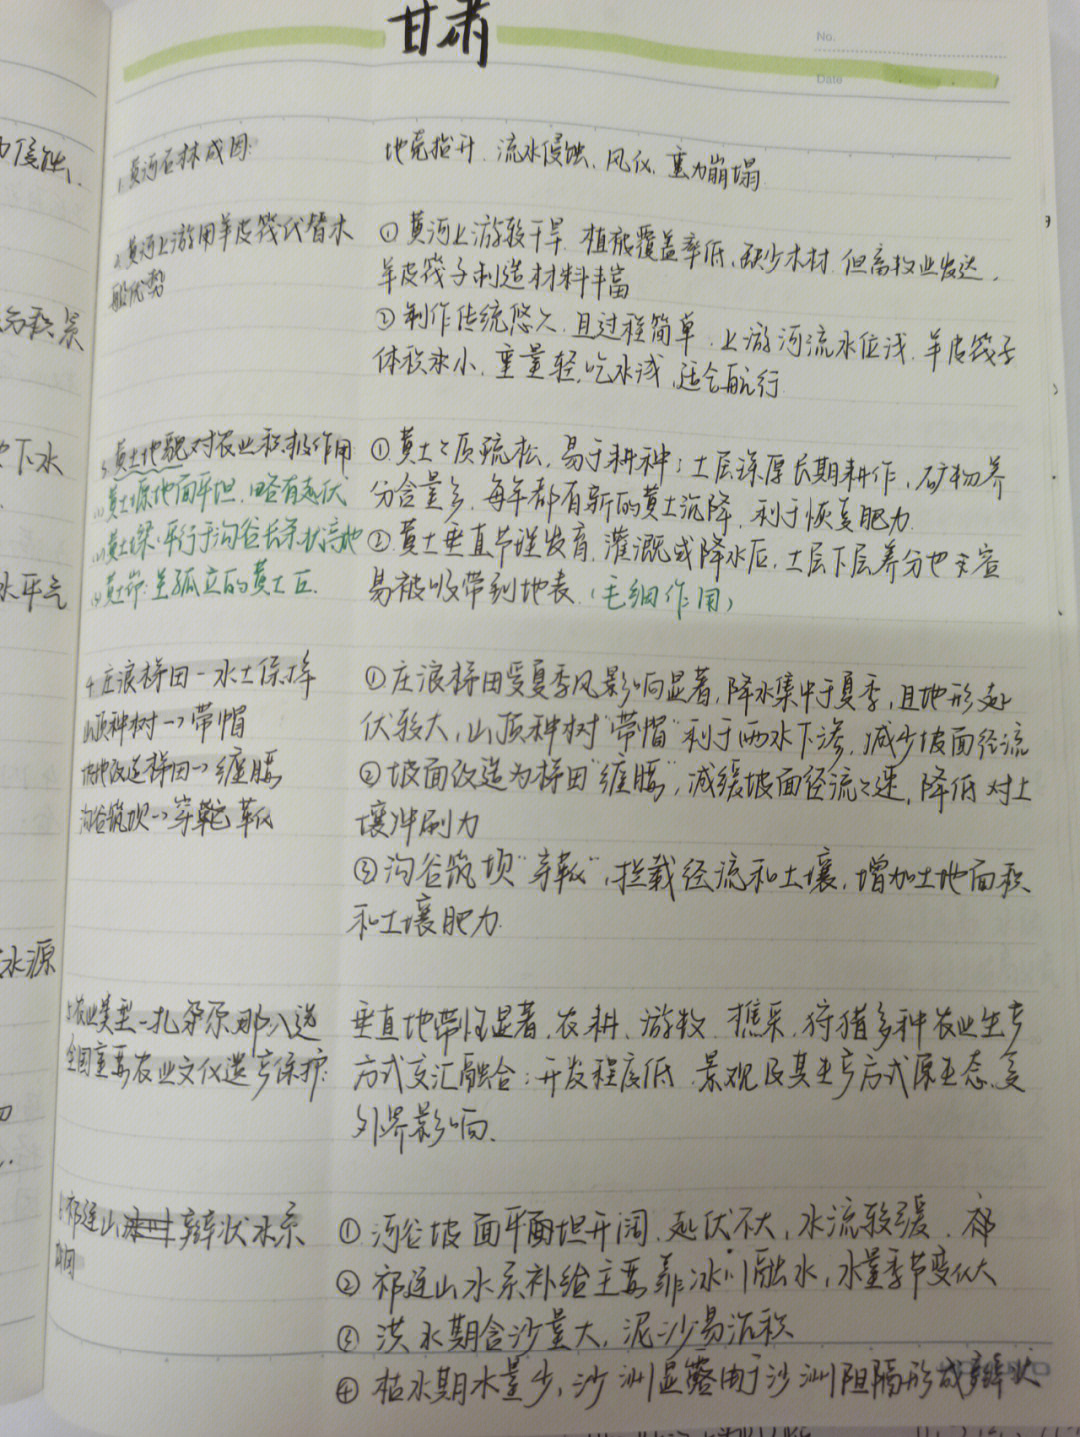 甘肃
No.
Date
1. 黄河石林成因
地壳抬升、流水侵蚀、风化、重力崩塌
2. 黄河上游用羊皮筏代替木
船优势
① 黄河上游较干旱 植被覆盖率低、缺少木材 但畜牧业发达,
羊皮筏子制造材料丰富
② 制作传统悠久 且过程简单、上游河流水位浅 羊皮筏子
体积小、重量轻,吃水浅,适合航行
3. 黄土地貌对农业积极作用
黄土塬地面平坦,略有起伏
黄土梁:平行于沟谷长条状高地
黄土峁:呈孤立的黄土丘
① 黄土土质疏松,易于耕种;土层深厚长期耕作,矿物养
分含量多,每年都有新的黄土沉降,利于恢复肥力
② 黄土垂直节理发育,灌溉或降水后,土层下层养分也
易被吸带到地表(毛细作用)
4. 庄浪梯田-水土保持
山顶种树→带帽
坡地改造梯田→缠腰
沟谷筑坝→穿靴
① 庄浪梯田受夏季风影响显著,降水集中于夏季,且地形起
伏较大,山顶种树"带帽"利于雨水下渗,减少坡面径流
② 坡面改造为梯田"缠腰",减缓坡面径流流速,降低对土
壤冲刷力
③ 沟谷筑坝"穿靴",拦截径流和土壤,增加土地面积
和土壤肥力
5. 农业类型-扎尕那入选
全国重要农业文化遗产保护
垂直地带性显著,农耕、游牧、樵采、狩猎多种农业生产
方式交汇融合;开发程度低,景观及其生产方式原生态,受
外界影响
祁连山辫状水系
① 河谷坡面平坦开阔,起伏不大,水流较缓
② 祁连山水系补给主要靠冰川融水,水量季节变化大
③ 洪水期含沙量大,泥沙易沉积
④ 枯水期水量少,沙洲显露由于沙洲阻隔形成辫状